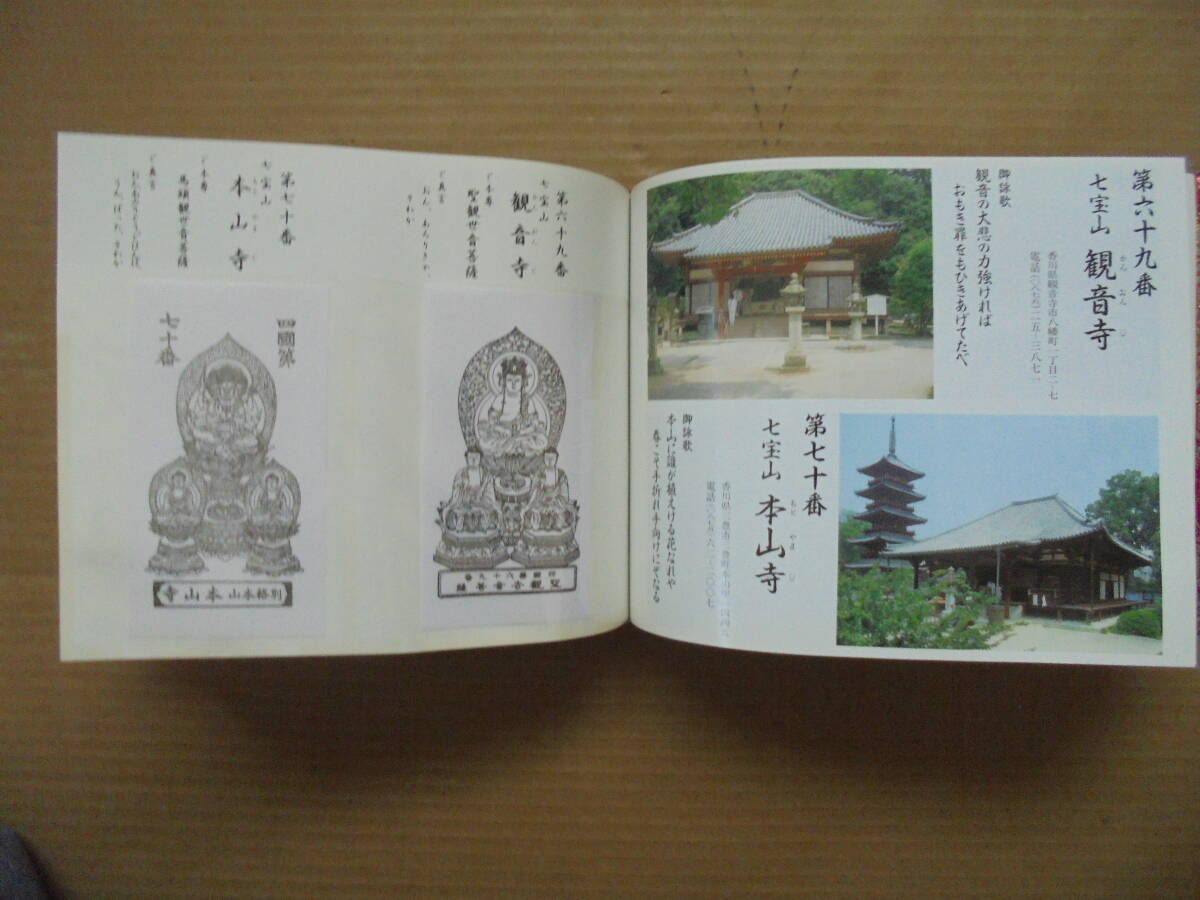 第六十九番
七宝山 観音寺
かん おん じ
香川県観音寺市八幡町一丁目二-七
電話(〇八七五)二五-三八七一
御詠歌
観音の大悲の力強ければ
おもき罪をもひきあげてたべ
第七十番
七宝山 本山寺
もと やま じ
電話(〇八七五)六二-二〇〇七
御詠歌
本山に誰が植えける花なれや
春こそ手折れ手向けにぞなる
第六十九番
七宝山
観音寺
かん おん じ
ご本尊
聖観世音菩薩
ご真言
おん、あろりきゃ、
そわか
四國第六十九番
聖観世音菩薩
第七十番
七宝山
本山寺
もと やま じ
ご本尊
馬頭観世音菩薩
ご真言
うん、はった、そわか
四國第
七十番
別格本山 本山寺